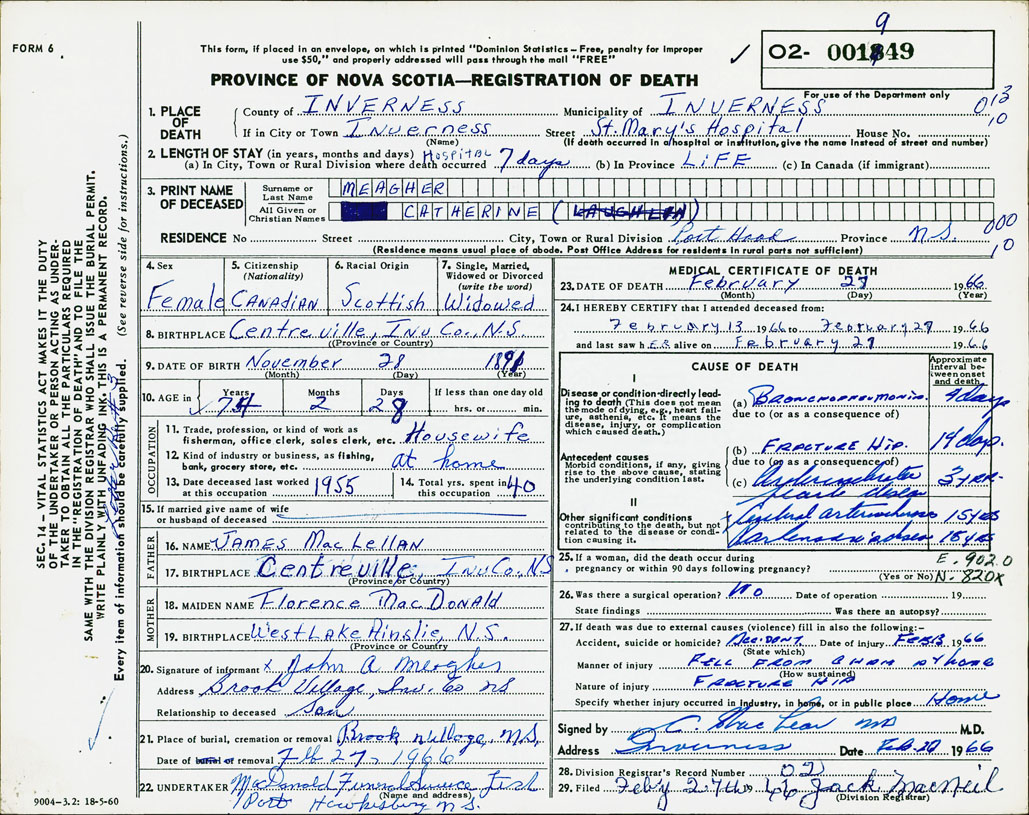 9
FORM 6
This form, if placed in an envelope, on which is printed "Dominion Statistics—Free, penalty for improper
use $50," and properly addressed will pass through the mail "FREE"
✓ O2- 001849
PROVINCE OF NOVA SCOTIA—REGISTRATION OF DEATH
For use of the Department only
1. PLACE OF DEATH County of INVERNESS Municipality of INVERNESS 013
If in City or Town Inverness Street St. Mary's Hospital House No. 10
(Name) (If death occurred in a hospital or institution, give the name instead of street and number)
2. LENGTH OF STAY (in years, months and days) HOSPITAL
(a) In City, Town or Rural Division where death occurred 7 days (b) In Province LIFE (c) In Canada (if immigrant)
3. PRINT NAME OF DECEASED
Surname or Last Name MEAGHER
All Given or Christian Names CATHERINE (LAUGHLIN)
000
RESIDENCE No Street City, Town or Rural Division Port Hood Province N.S. 10
(Residence means usual place of abode. Post Office Address for residents in rural parts not sufficient)
4. Sex Female
5. Citizenship (Nationality) CANADIAN
6. Racial Origin Scottish
7. Single, Married, Widowed or Divorced (write the word) Widowed
8. BIRTHPLACE Centreville, Inv. Co., N.S.
(Province or Country)
9. DATE OF BIRTH November 28 1891
(Month) (Day) (Year)
10. AGE in Years 74 Months 2 Days 28 If less than one day old
hrs. or min.
OCCUPATION
11. Trade, profession, or kind of work as
fisherman, office clerk, sales clerk, etc. Housewife
12. Kind of industry or business, as fishing,
bank, grocery store, etc. at home
13. Date deceased last worked at this occupation 1955
14. Total yrs. spent in this occupation 40
15. If married give name of wife
or husband of deceased
FATHER
16. NAME JAMES MacLellan
17. BIRTHPLACE Centreville, Inv Co., NS
(Province or Country)
MOTHER
18. MAIDEN NAME Florence MacDonald
19. BIRTHPLACE West Lake Ainslie, N.S.
(Province or Country)
20. Signature of informant x John A Meagher
Address Brook Village, Inv. Co NS
Relationship to deceased Son
21. Place of burial, cremation or removal Brook Village, N.S.
Date of burial or removal Feb 27, 1966
22. UNDERTAKER MacDonald Funeral Service
(Name and address)
Port Hawkesbury N.S.
9004-3.2: 18-5-60
MEDICAL CERTIFICATE OF DEATH
23. DATE OF DEATH February 27 1966
(Month) (Day) (Year)
24. I HEREBY CERTIFY that I attended deceased from:
February 13 1966 to February 27 1966
and last saw hER alive on February 27 1966
CAUSE OF DEATH
Approximate interval between onset and death
I
Disease or condition directly leading to death (This does not mean the mode of dying, e.g., heart failure, asthenia, etc. It means the disease, injury, or complication which caused death.)
(a) BRONCHOPNEUMONIA 4 days
due to (or as a consequence of)
(b) FRACTURE HIP. 14 days
Antecedent causes
Morbid conditions, if any, giving rise to the above cause, stating the underlying condition last.
due to (or as a consequence of)
(c) heart disease 3 yrs
II
Other significant conditions
contributing to the death, but not related to the disease or condition causing it.
15 yrs
15 yrs
E. 902.0
25. If a woman, did the death occur during
pregnancy or within 90 days following pregnancy? (Yes or No) N. 820X
26. Was there a surgical operation? No Date of operation 19
State findings Was there an autopsy?
27. If death was due to external causes (violence) fill in also the following:—
Accident, suicide or homicide? Accident Date of injury Feb 13 1966
(State which)
Manner of injury FELL FROM CHAIR AT HOME
(How sustained)
Nature of injury FRACTURE HIP
Specify whether injury occurred in industry, in home, or in public place Home
Signed by C. MacLean MD M.D.
Address Inverness Date Feb. 27 1966
28. Division Registrar's Record Number 02
29. Filed Feby 27th 66 Jack MacNeil
(Division Registrar)
SEC. 14—VITAL STATISTICS ACT MAKES IT THE DUTY
OF THE UNDERTAKER OR PERSON ACTING AS UNDER-
TAKER TO OBTAIN ALL THE PARTICULARS REQUIRED
IN THE "REGISTRATION OF DEATH" AND TO FILE THE
SAME WITH THE DIVISION REGISTRAR WHO SHALL ISSUE THE BURIAL PERMIT.
WRITE PLAINLY WITH UNFADING INK. THIS IS A PERMANENT RECORD.
Every item of information should be carefully supplied. (See reverse side for instructions.)